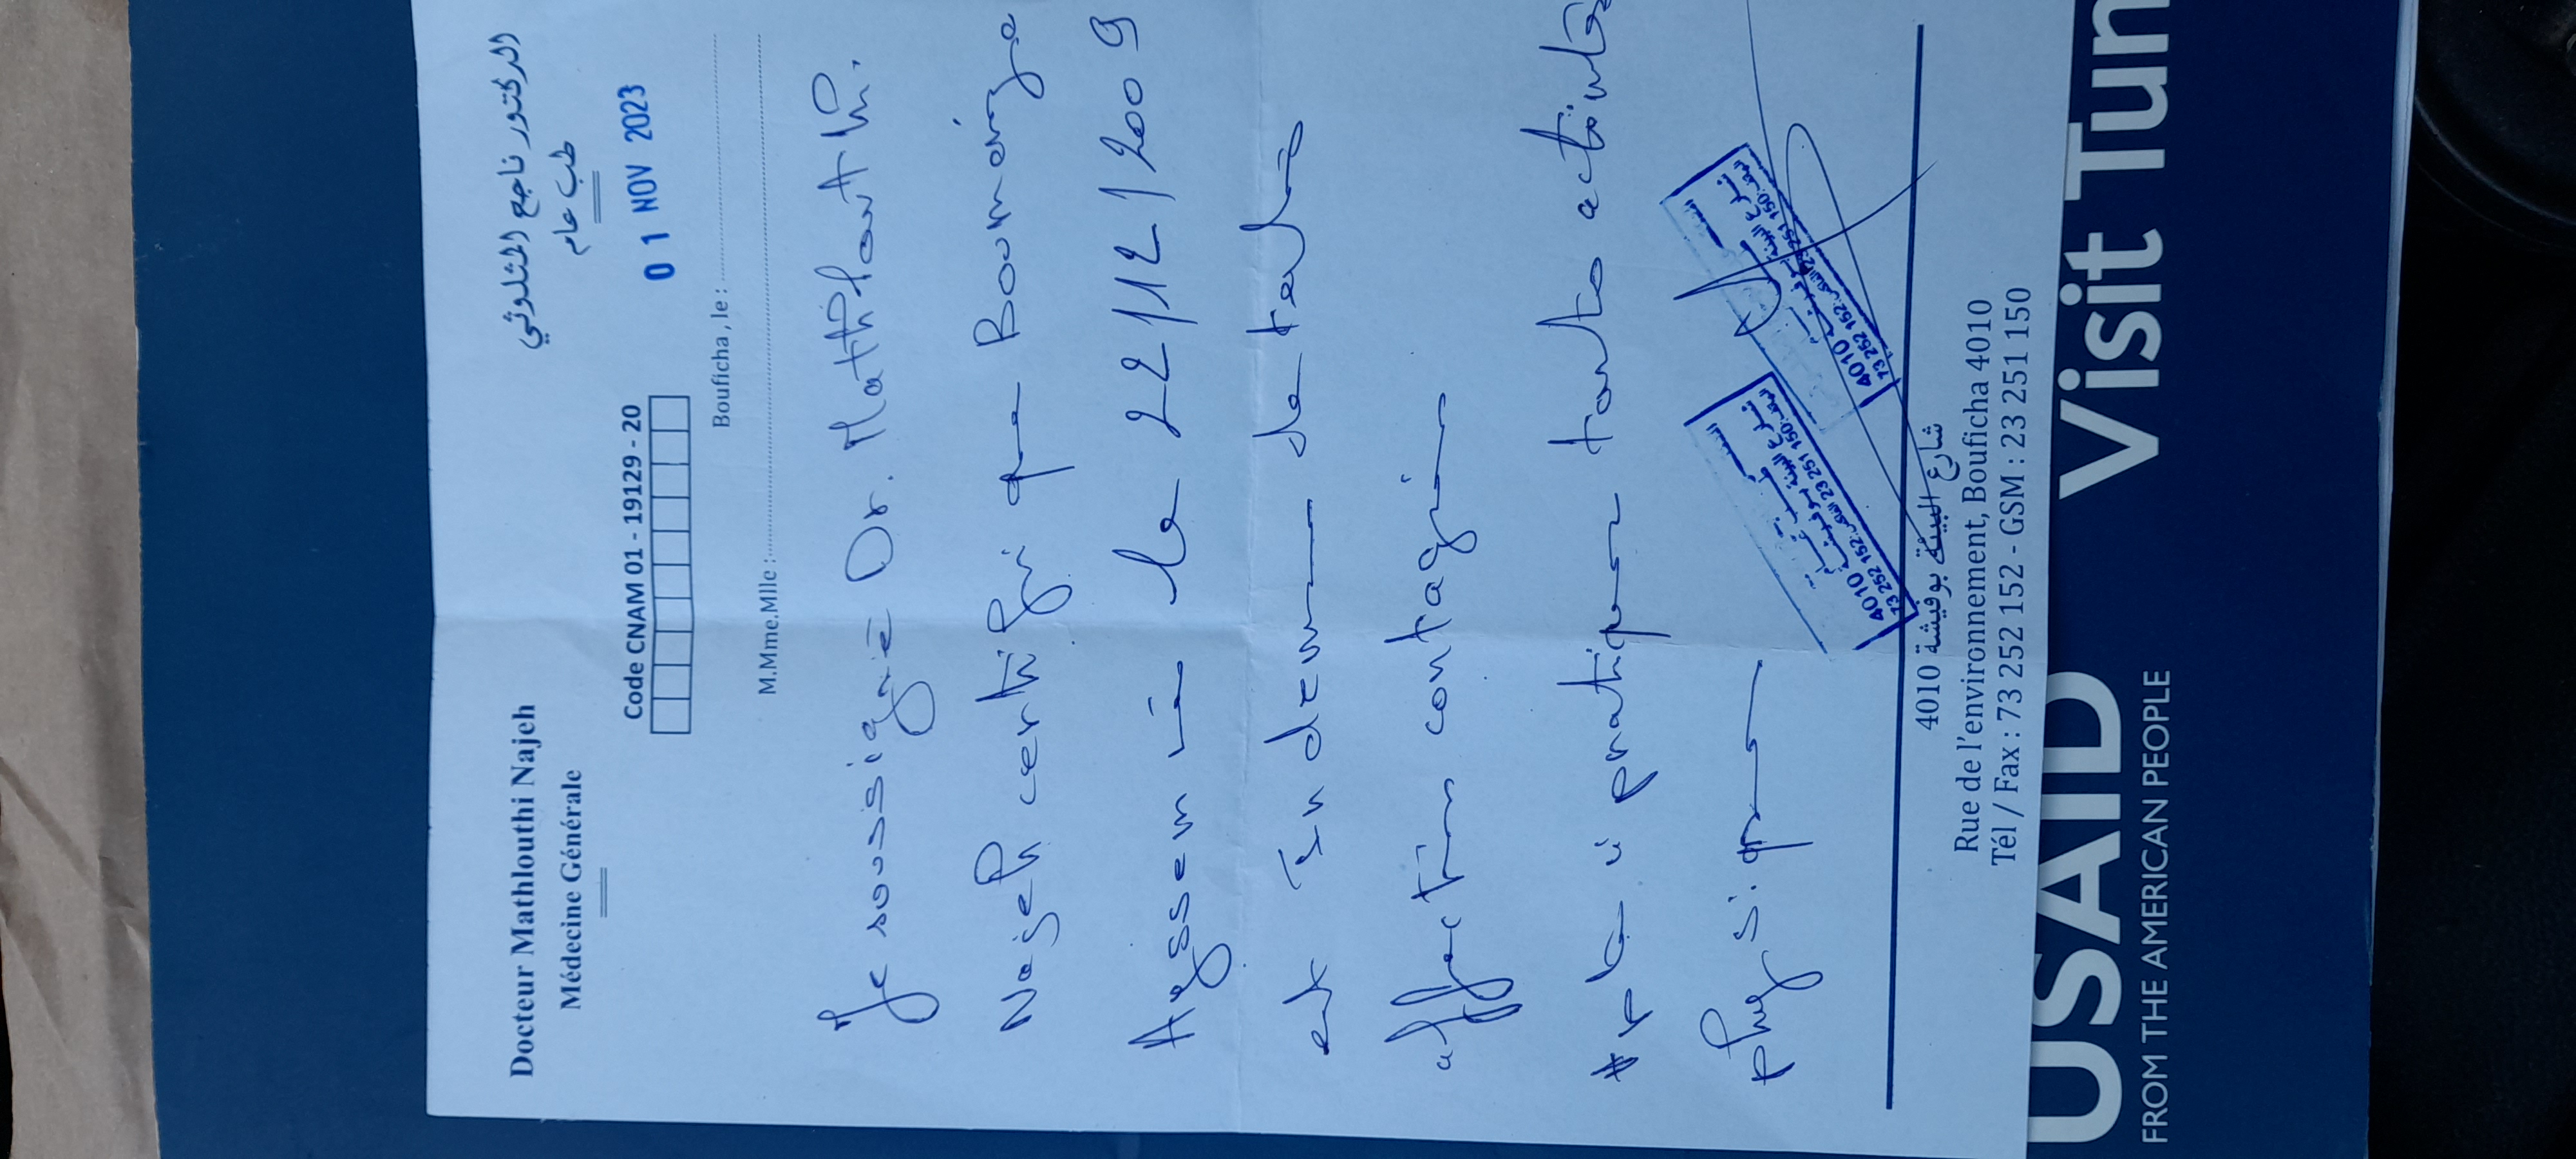 Docteur Mathlouthi Najeh
Médecine Générale
الدكتور ناجع المثلوثي
طب عام
Code CNAM 01 - 19129 - 20
0 1 NOV 2023
Bouficha , le :
M.Mme.Mlle :
Je soussigné Dr. Mathlouthi
Najeh certifie que Boumeriga
Ayssem né le 22/12/2009
est indemne de toute
affection contagieuse
et à pratiquer toute activité
physique
4010
73 252 152
23 251 150
4010
73 252 152
23 251 150
شارع البيئة بوفيشة 4010
Rue de l'environnement, Bouficha 4010
Tél / Fax : 73 252 152 - GSM : 23 251 150
USAID
FROM THE AMERICAN PEOPLE
Visit Tun